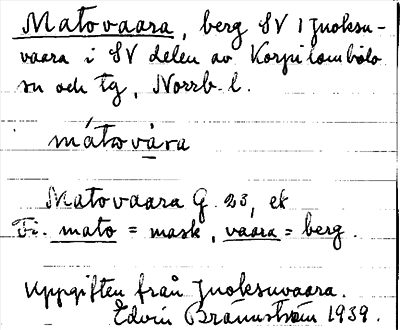 Matovaara, berg SV i Juoksu-
vaara i SV delen av Korpilombolo
sn och tg, Norrb. l.
mátovàra
Matovaara G. 23, ek
Fi. mato = mask, vaara = berg.
Uppgiften från Juoksuvaara.
Edvin Brännström 1939.